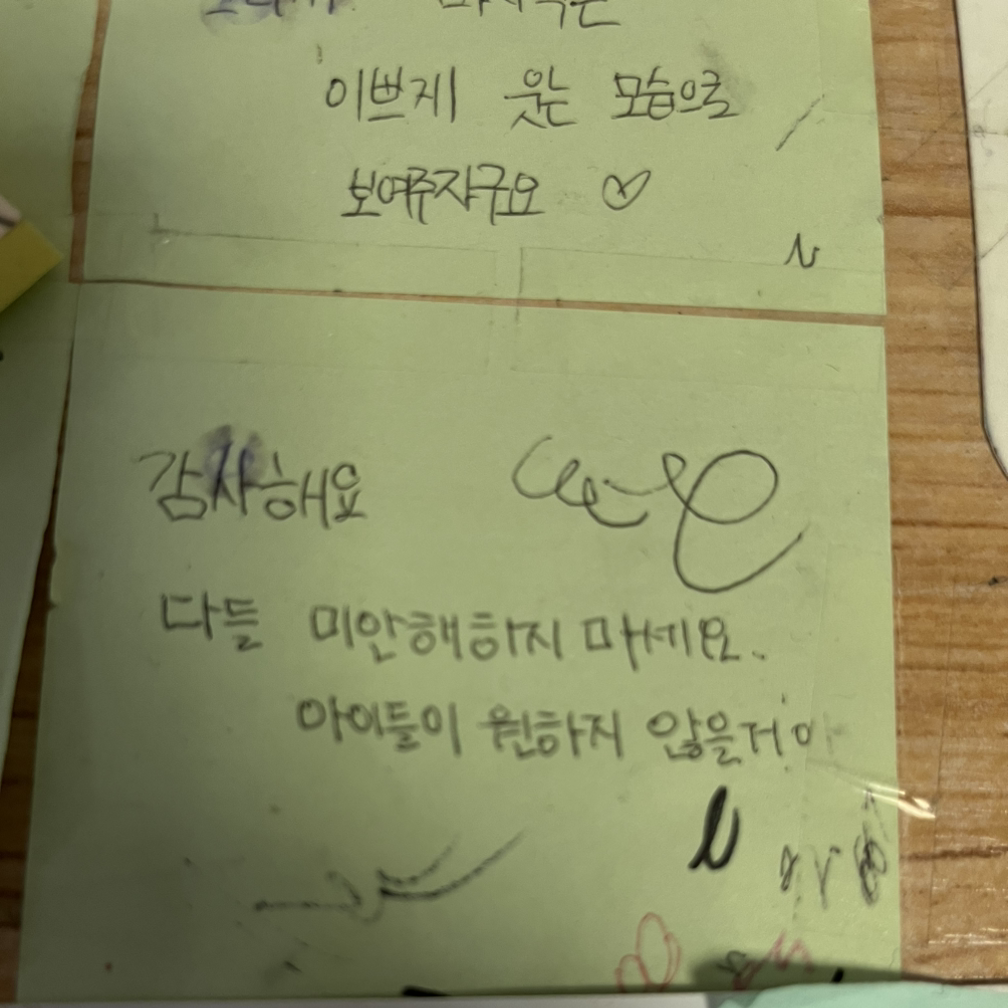 마지막은
이쁘게 웃는 모습으로
보여주자구요 ♡
감사해요
다들 미안해하지 마세요.
아이들이 원하지 않을거야